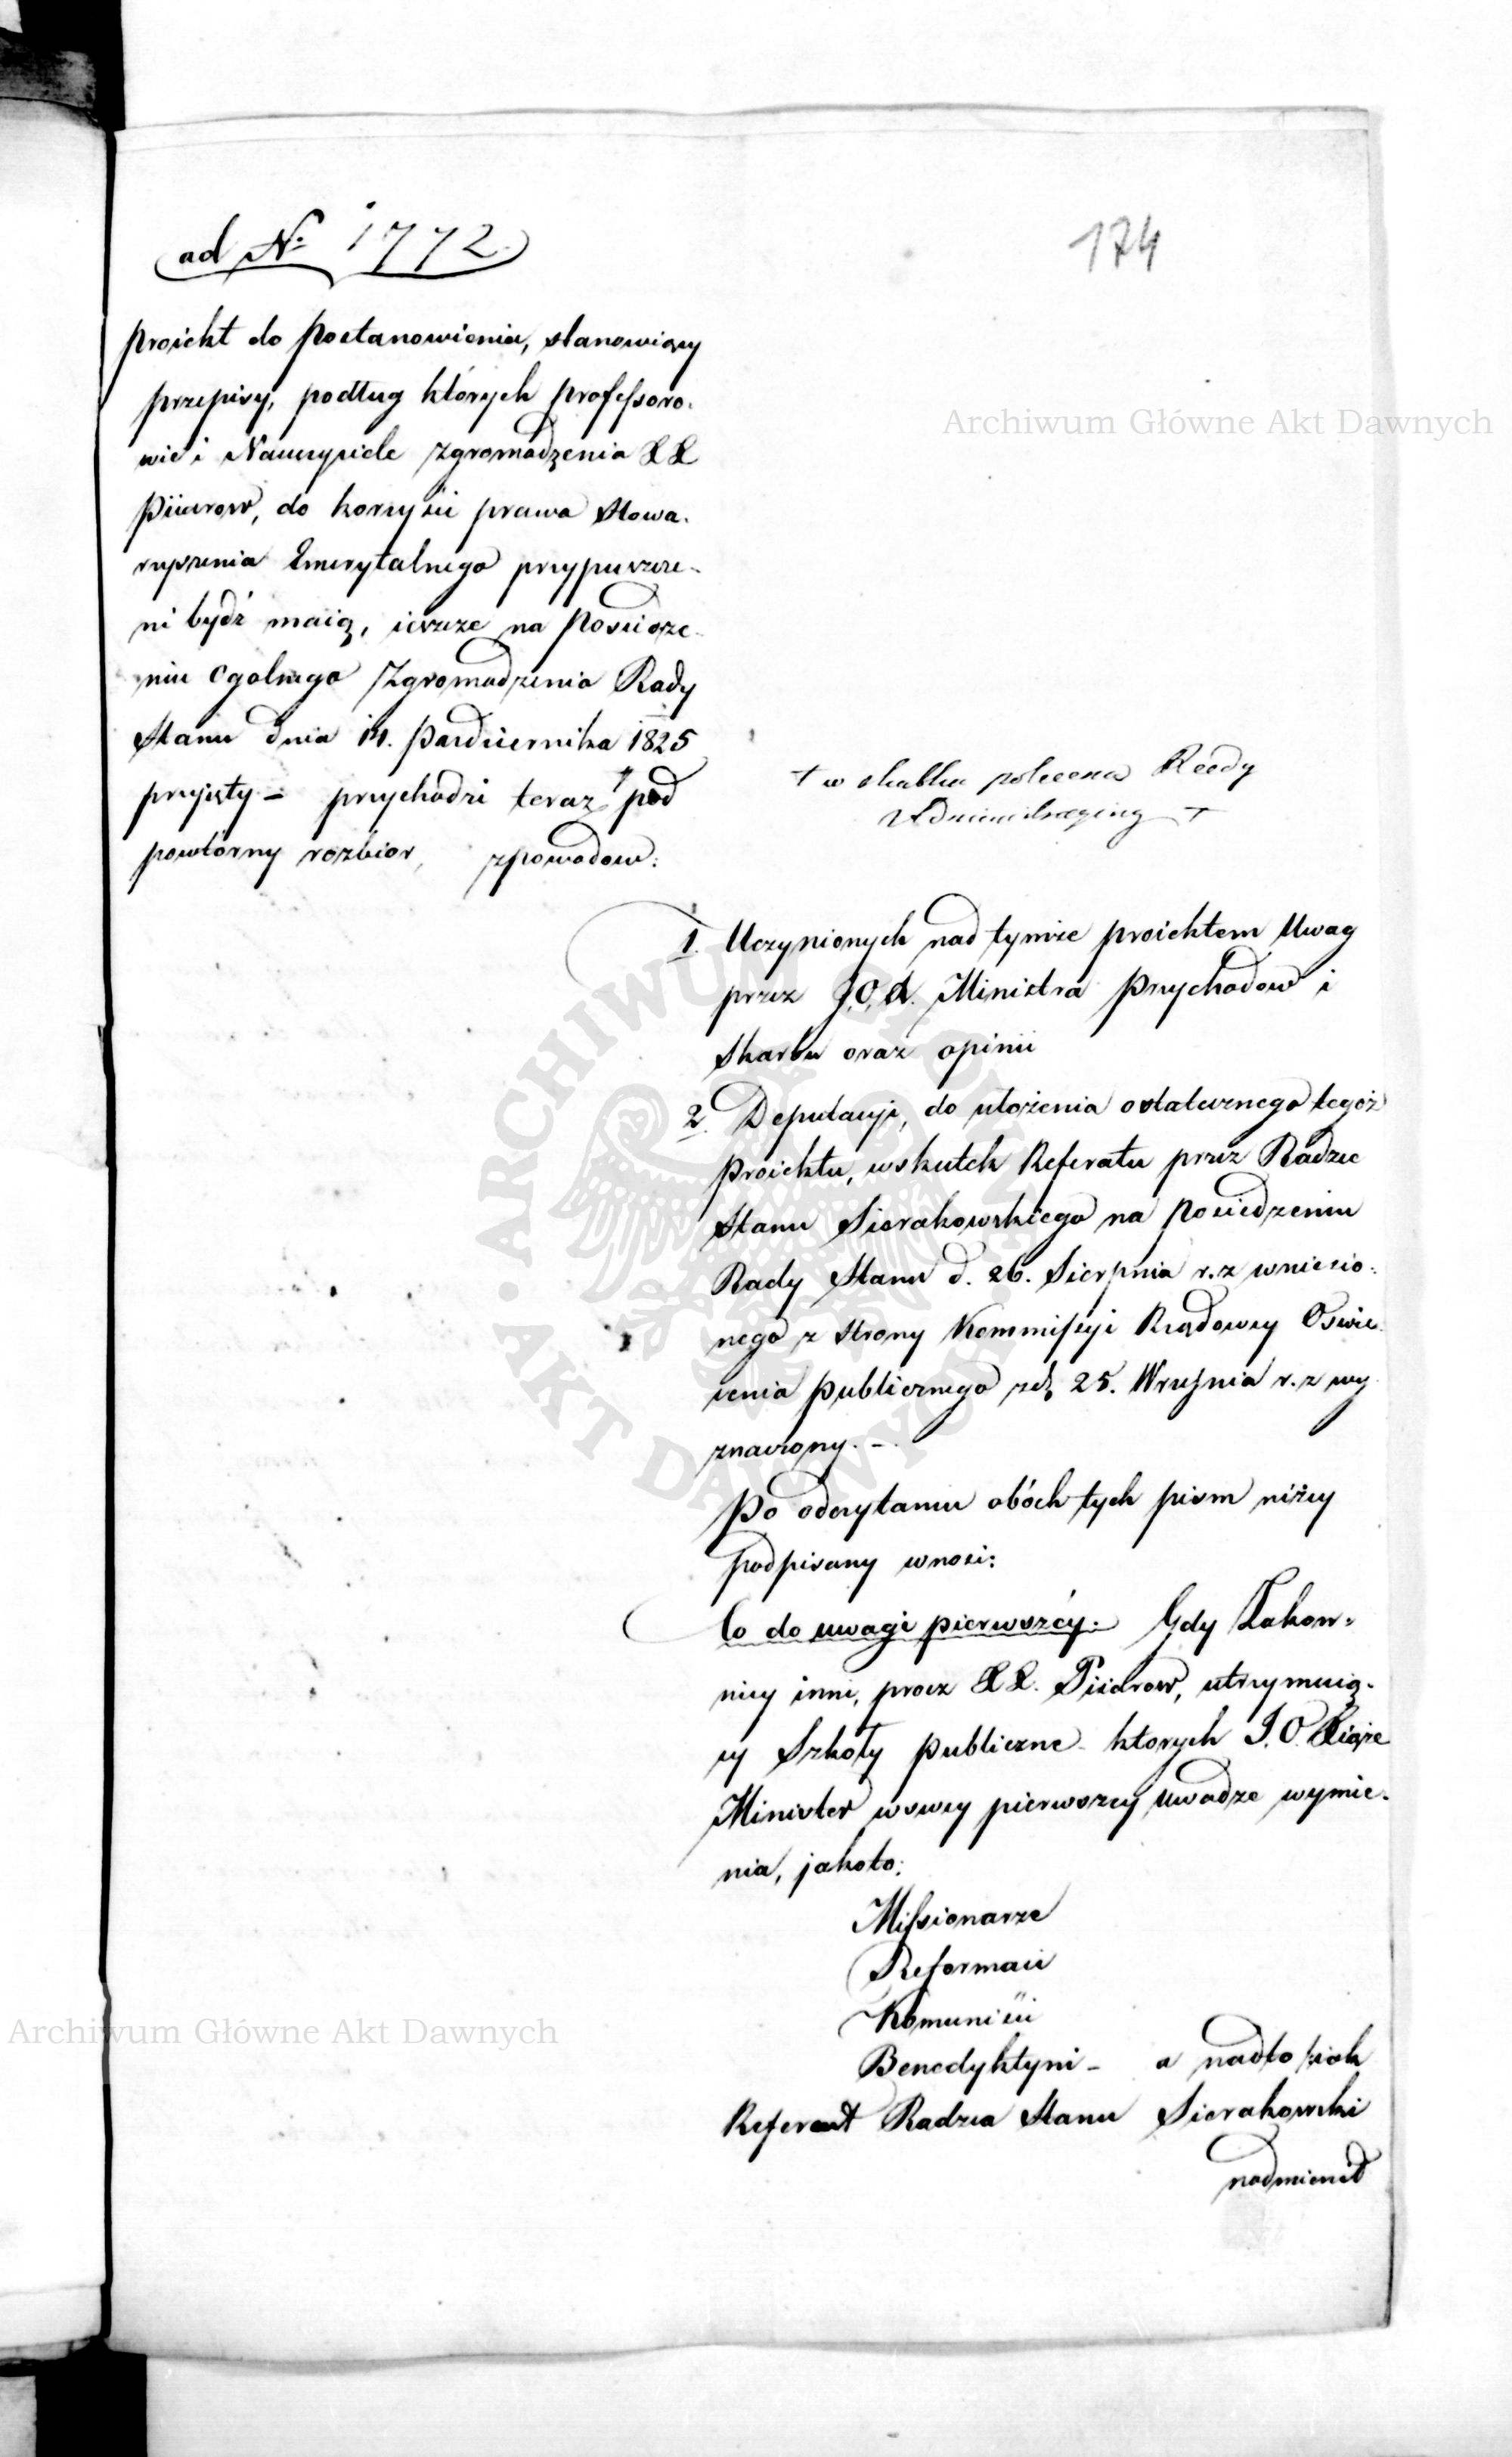 ad No 1772.
174
Proiekt do Postanowienia, stanowiący
przepisy, podług których Professoro-
wie i Nauczyciele Zgromadzenia XX
Piiarow, do korzyści prawa Stowa-
rzyszenia Emerytalnego przypuszcze-
ni bydź maią, ieszcze na Posiedze-
niu Ogolnego Zgromadzenia Rady
Stanu dnia 14. Października 1825
przyięty – przychodzi teraz + pod
powtórny rozbior, zpowodow:
+ w skutku polecenia Rady
Administracyiney +
1. Uczynionych nad tymże proiektem Uwag
przez J.O.X. Ministra Przychodow i
Skarbu oraz opinii
2. Deputacyi, do ułożenia ostatecznego tegoż
Proiektu, wskutek Referatu przez Radzcę
Stanu Sierakowskiego na Posiedzeniu
Rady Stanu d. 26. Sierpnia r. z wniesio-
nego z strony Kommissyi Rządowey Oświe-
cenia Publicznego zd. 25. Września r. z wy
znaczony. –
Po odczytaniu obóch tych pism niżey
podpisany wnosi:
Co do uwagi pierwszéy: Gdy Zakon-
nicy inni, procz XX. Piiarow, utrzymuią-
cy Szkoły Publiczne których J.O. Xiąże
Minister wswey pierwszey Uwadze wymie-
nia, jakoto:
Missionarze
Reformaci
Komuniści
Benedyktyni – a nadto jak
Referent Radzca Stanu Sierakowski
nadmienił
Archiwum Główne Akt Dawnych
Archiwum Główne Akt Dawnych
ARCHIWUM GŁÓWNE • AKT DAWNYCH •